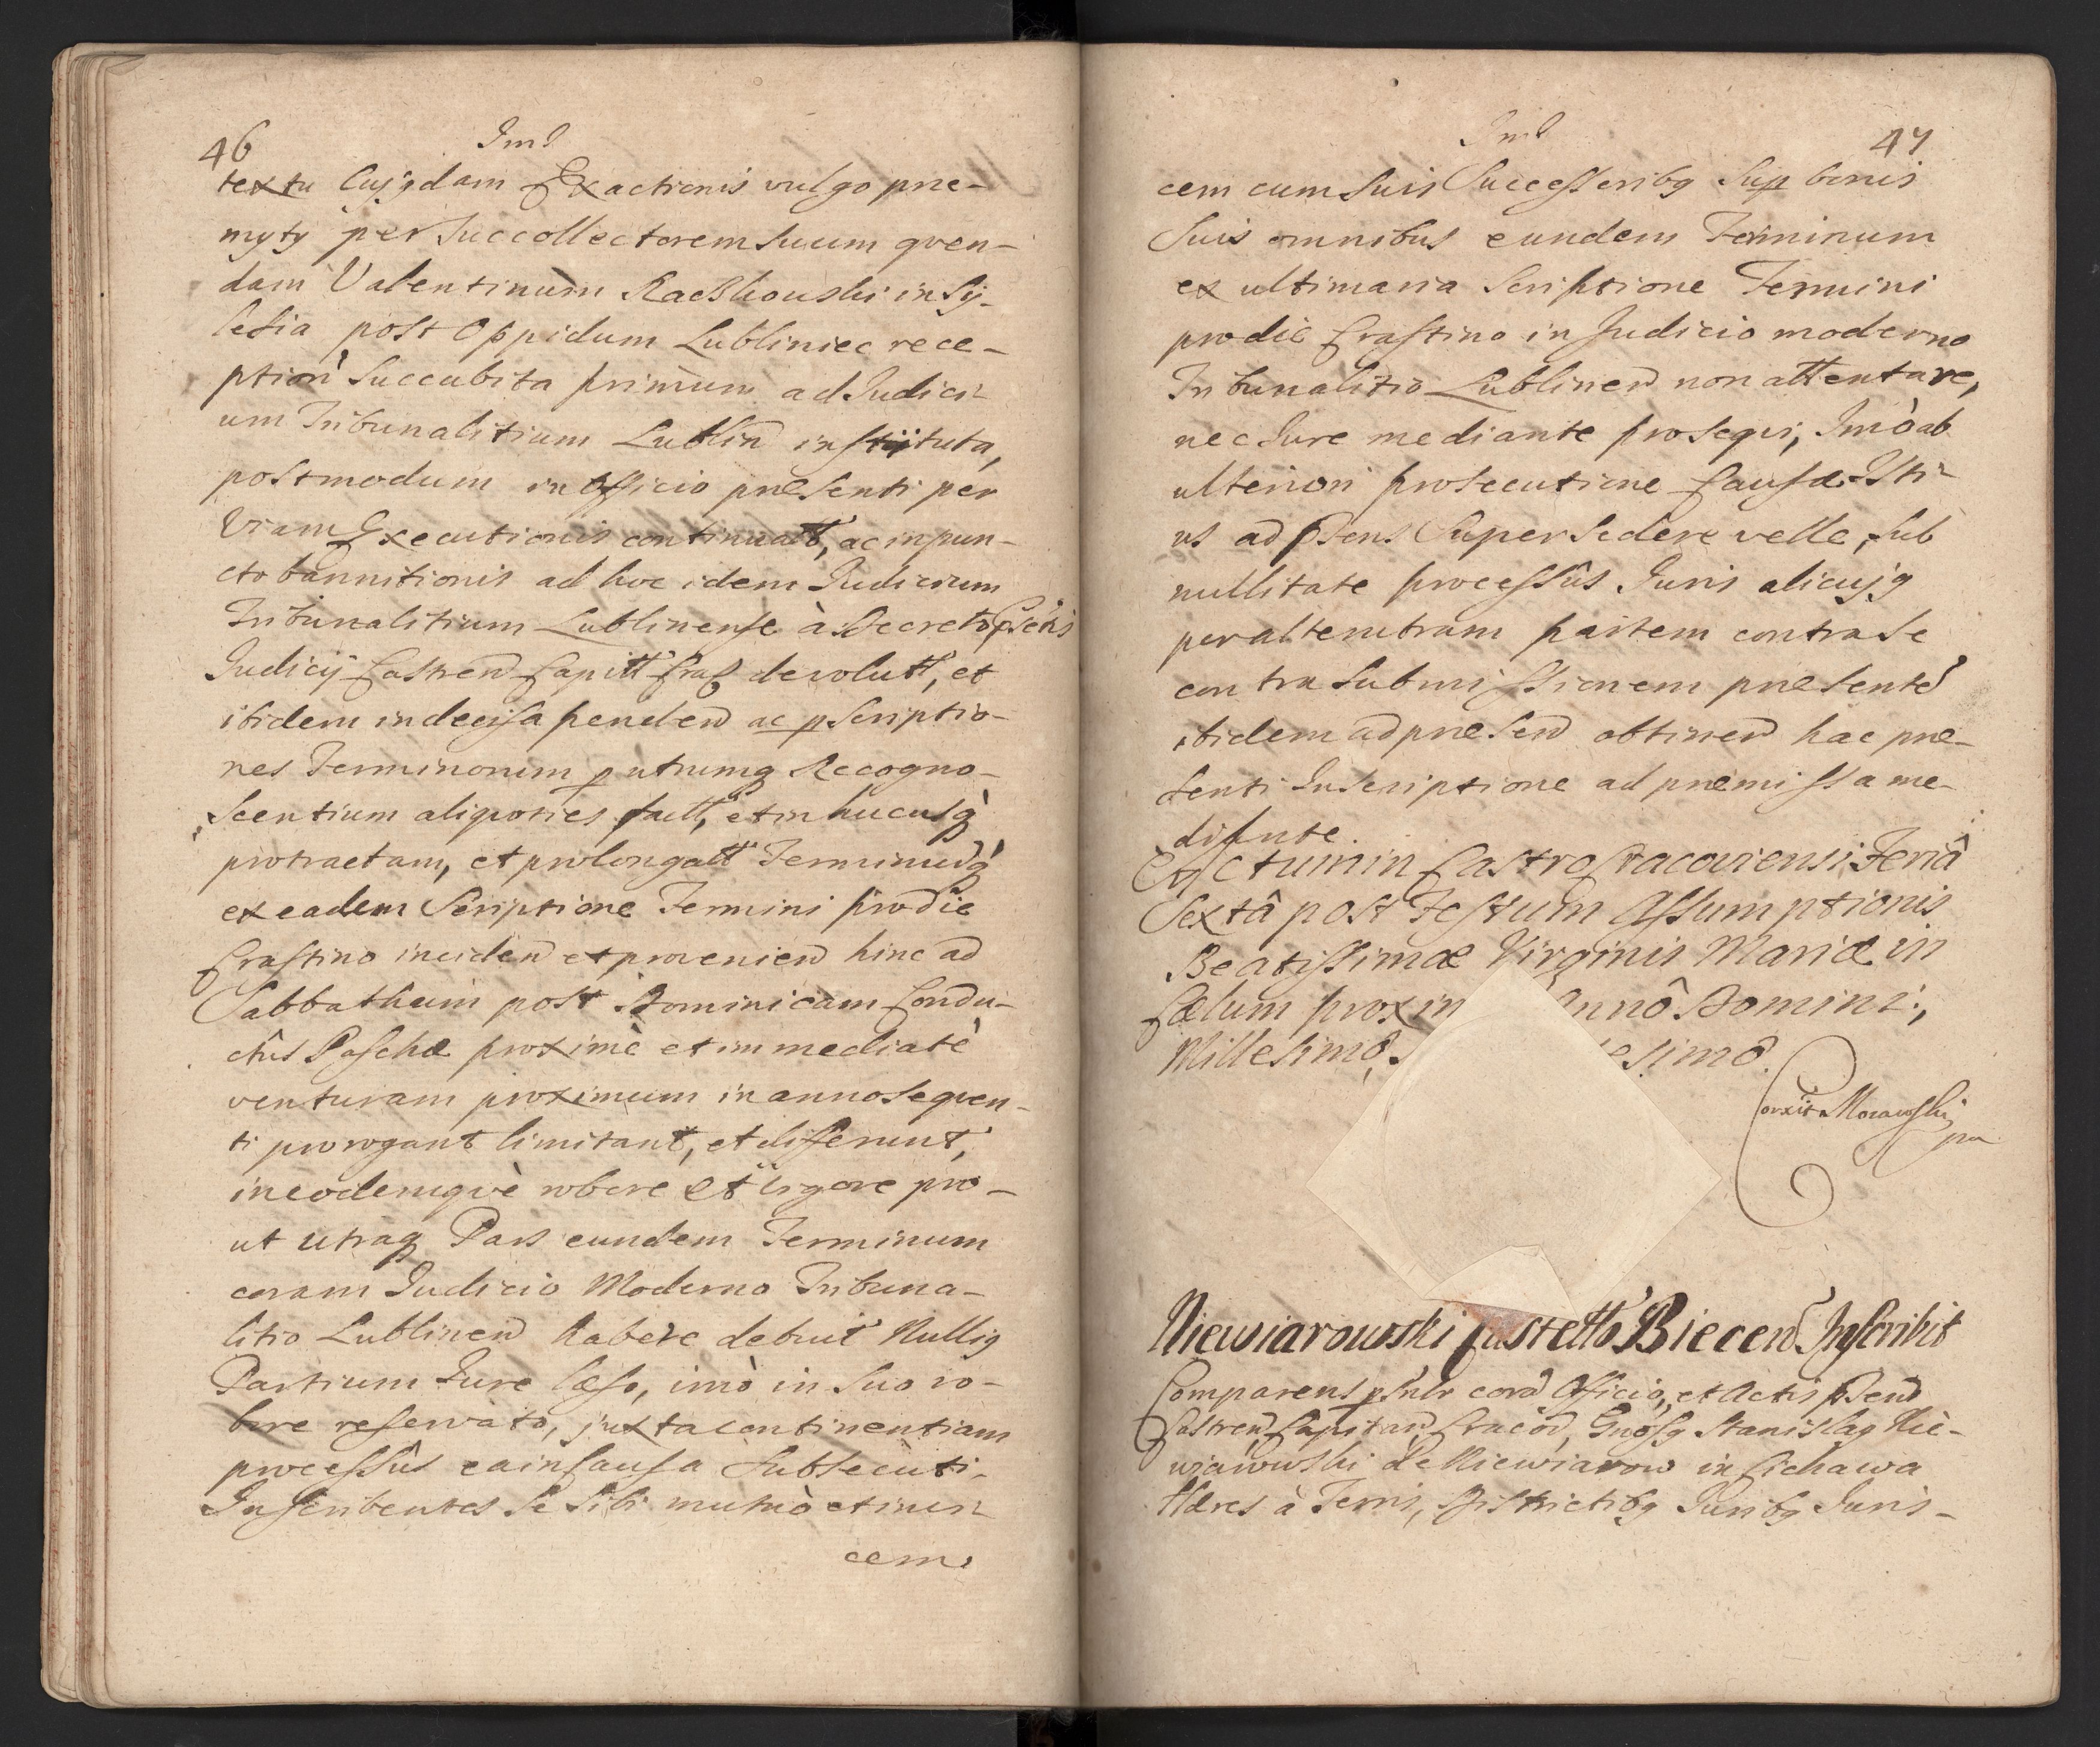 46
textu Cujqdam Exactionis vulgo prœ-
myty per Succollectorem suum quen-
dam Valentinum Raczkowski in Sy-
lesia post Oppidum Lubliniec rece-
ption succubita primum ad Judici-
um Tribunalitium Lublin instituta,
postmodum in Officio præsenti per
Viam Executionis continuatt, ac in pun-
cto bannitionis ad hoc idem Judicium
Tribunalitium Lublinense à Decreto
Judicij Castren Capitt Crac devolutt, et
ibidem indecisa penden ac p Scriptio-
nes Terminorum p utrumq Recogno-
scentium aliquoties fact, et in hucusq
protractam, et prolongatt Terminumq
ex eadem Scriptione Termini pro die
Crastino inciden et provenien hinc ad
Sabbathum post Dominicam Condu-
ctûs Paschæ proximè et immediatè
venturam proximum in anno sequen-
ti prorogant limitant, et differunt,
in eodemquè robore et vigore pro-
ut utraq Pars eundem Terminum
coram Judicio Moderno Tribuna-
litio Lublinen habere debuit Nulliq
Partium Jure læso, imò in suo ro-
bore reservato, juxta continentiam
processûs ea in Causa subsecuti.
Inscribentes se sibi mutuò et invi-
cem
47
cem cum suis Successoribq sup bonis
Suis omnibus eundem Terminum
ex ultimaria Scriptione Termini
pro die Crastino in Judicio moderno
Tribunalitio Lublinen non attentare,
nec Jure mediante prosequi, Imò ab
ulteriori prosecutione Causæ Isti-
us ad psens Supersedere velle, sub
nullitate processûs Juris alicujq
per alterutram partem contra se
contra submissionem præsente
ibidem ad præsen obtinen hac præ-
senti Inscriptione ad præmissa me-
diante.
Actum in Castro Cracoviensi Feriâ
Sextâ post Festum Assumptionis
Beatissimæ Virginis Mariæ in
Cœlum proxim nnô Domini,
Millesimô, esimô.
Morawski
Niewiarowski Castello Biecen Inscribit
Comparens psnlr corã Officio, et Actis psen
Castren Capitan Cracov, Gnosq Stanislaq Nie-
wiarowski de Niewiarow in Cichawa
Hæres à Terris, Districtibq Juribq Juris-